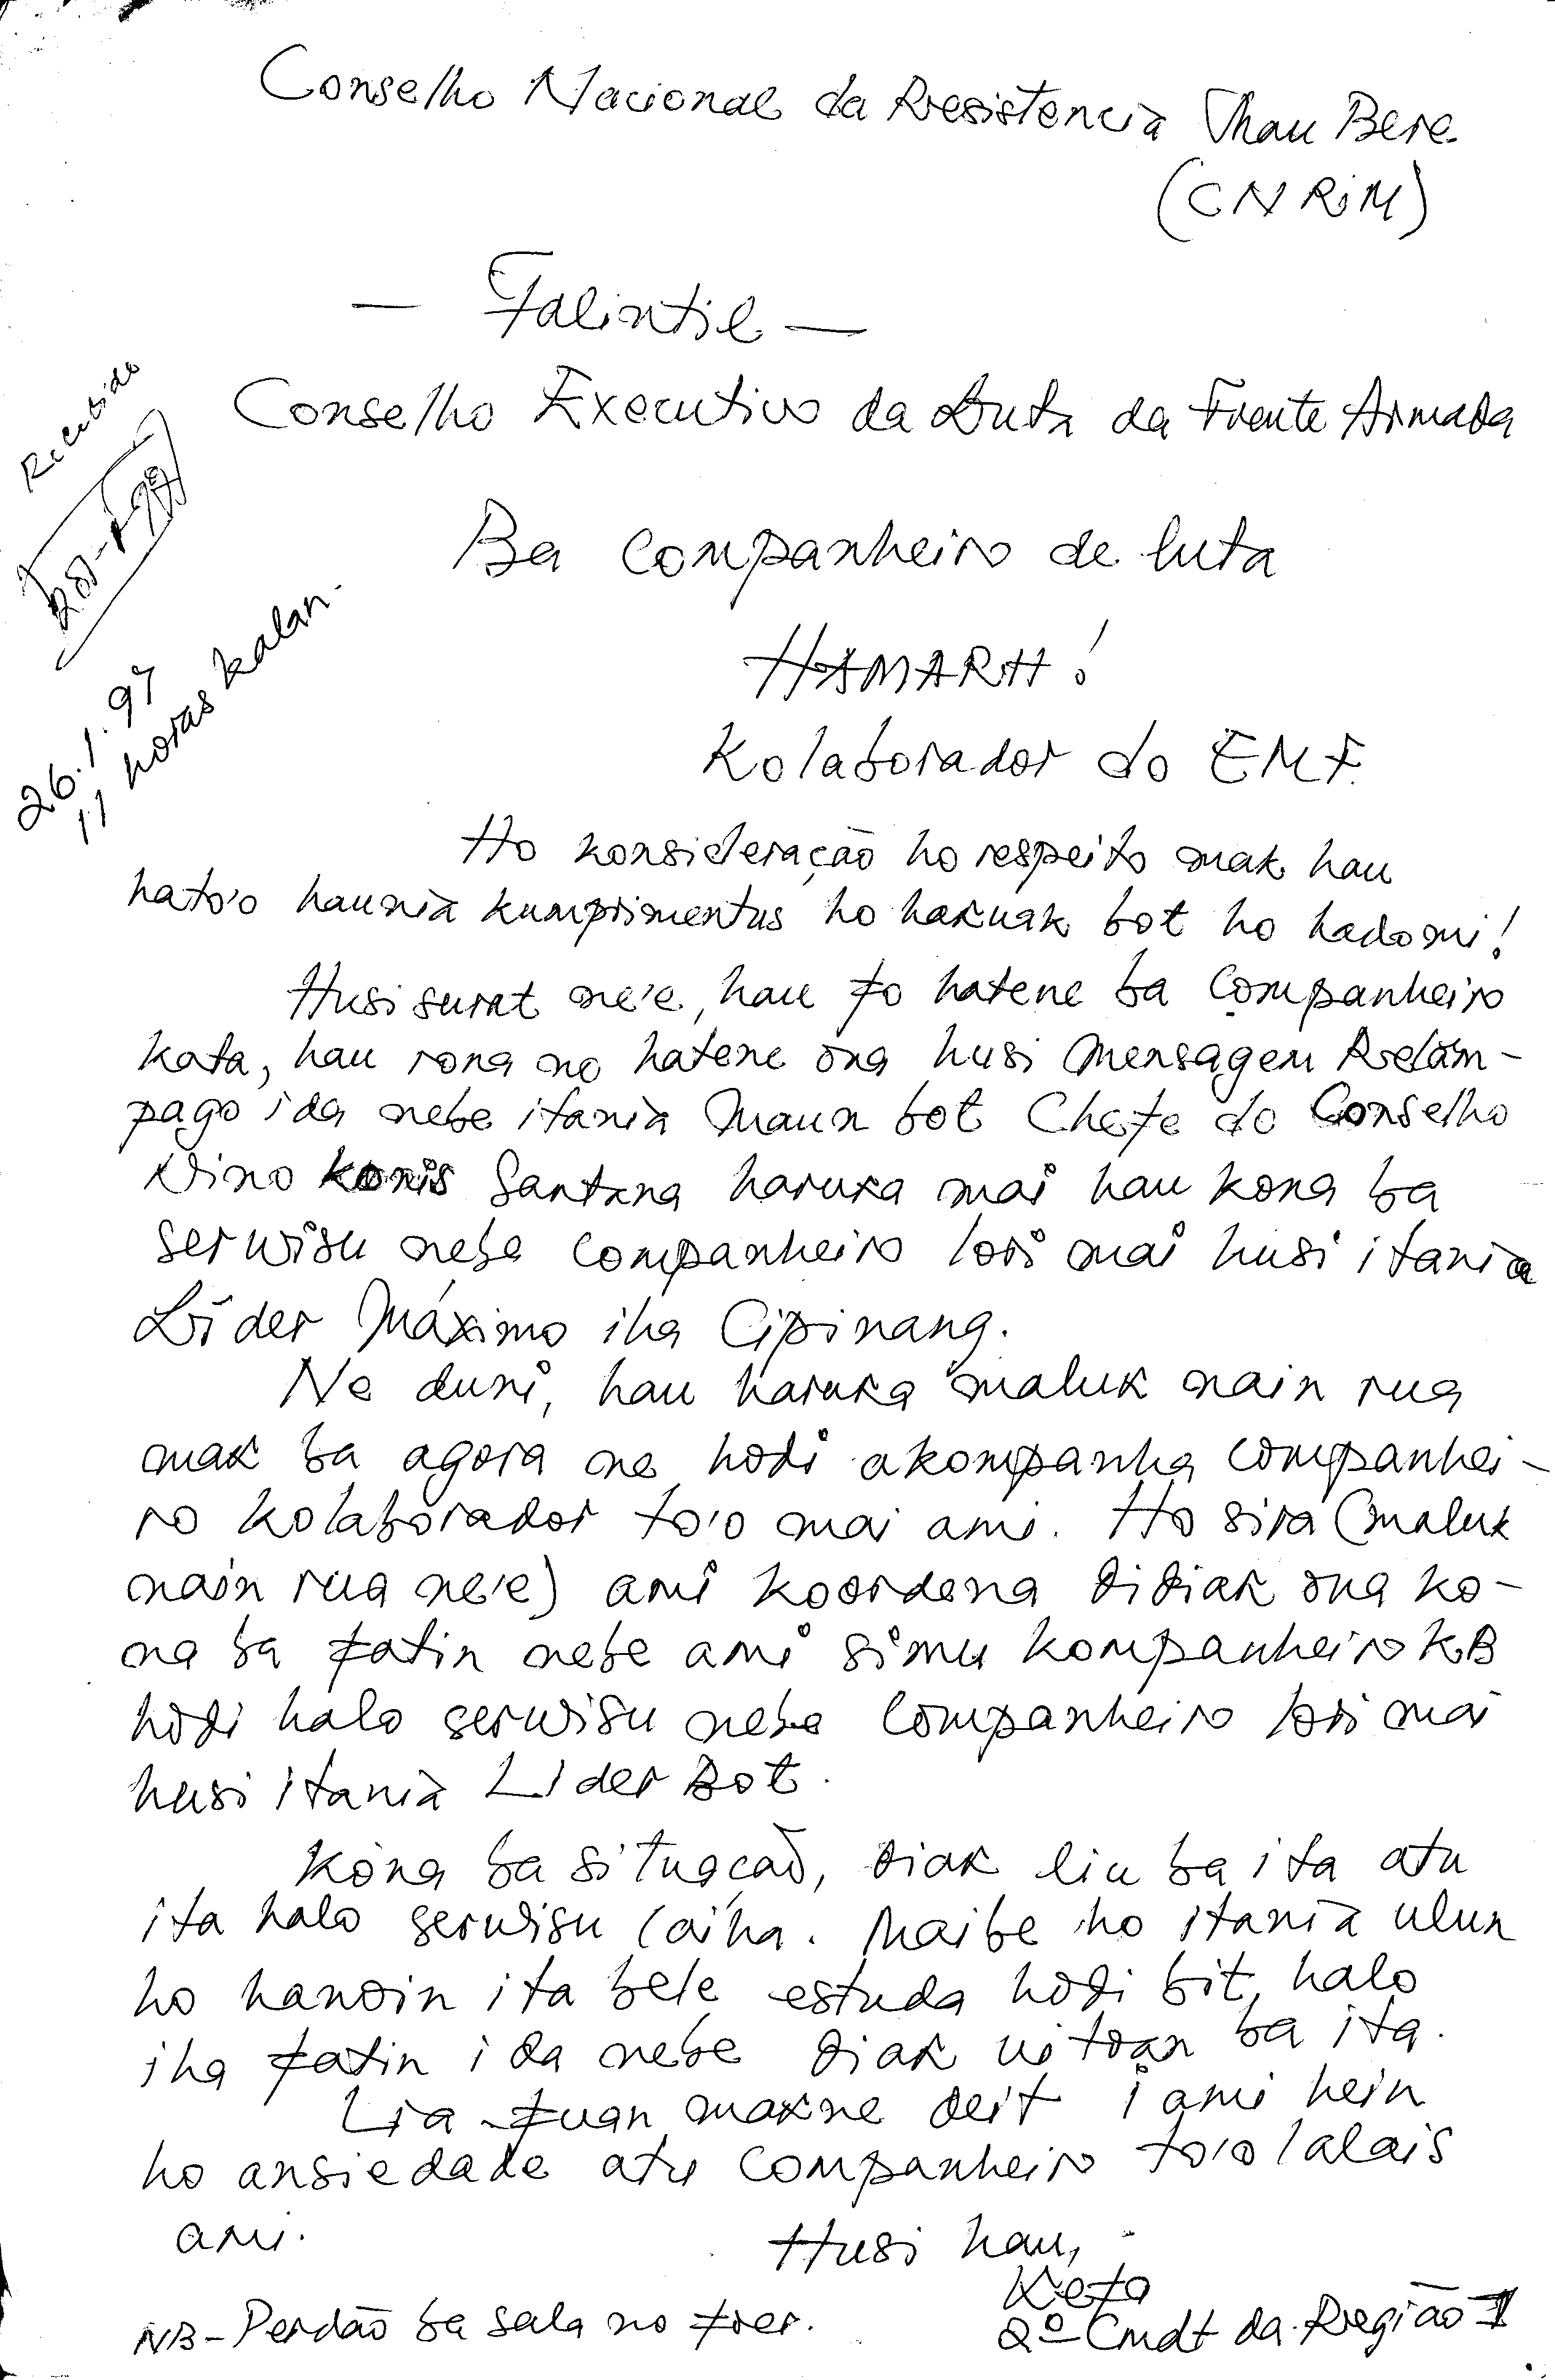 Conselho Nacional da Resistencia Mau Bere
(CNRM)
— Falintil —
Conselho Executivo da Luta da Frente Armada
Recebido
26.1.97
11 horas kalan.
Ba Companheiro de luta
HAMARH!
Kolaborador do EMF
Ho konsideração ho respeito mak hau
hato'o haunia kumprimentus ho hakuak bot ho hadomi!
Husi surat ne'e, hau fo hatene ba Companheiro
kata, hau rona no hatene ona husi Mensagem Relâm-
pago ida nebe itania Maun bot Chefe do Conselho
Nino Konis Santana haruka mai hau kona ba
serwisu nebe Companheiro lori mai husi itania
Líder Máximo iha Cipinang.
Ne duni, hau haruka maluk nain rua
mak ba agora ne hodi akompanha Companhei-
ro kolaborador to'o mai ami. Ho sira (maluk
nain rua ne'e) ami koordena didiak ona ko-
na ba fatin nebe ami simu kompanheiro KB
hodi halo serwisu nebe Companheiro lori mai
husi itania Lider Bot.
Kona ba situação, diak liu ba ita atu
ita halo serwisu laiha. Maibe ho itania ulun
ho hanoin ita bele estuda hodi bit halo
iha fatin ida nebe diak uitoan ba ita.
Lia-fuan makne deit i ami hein
ho ansiedade atu Companheiro to'o lalais
ami.
Husi hau,
Kefa
2º Cmdt da Região I
NB- Perdão ba sala no foer.